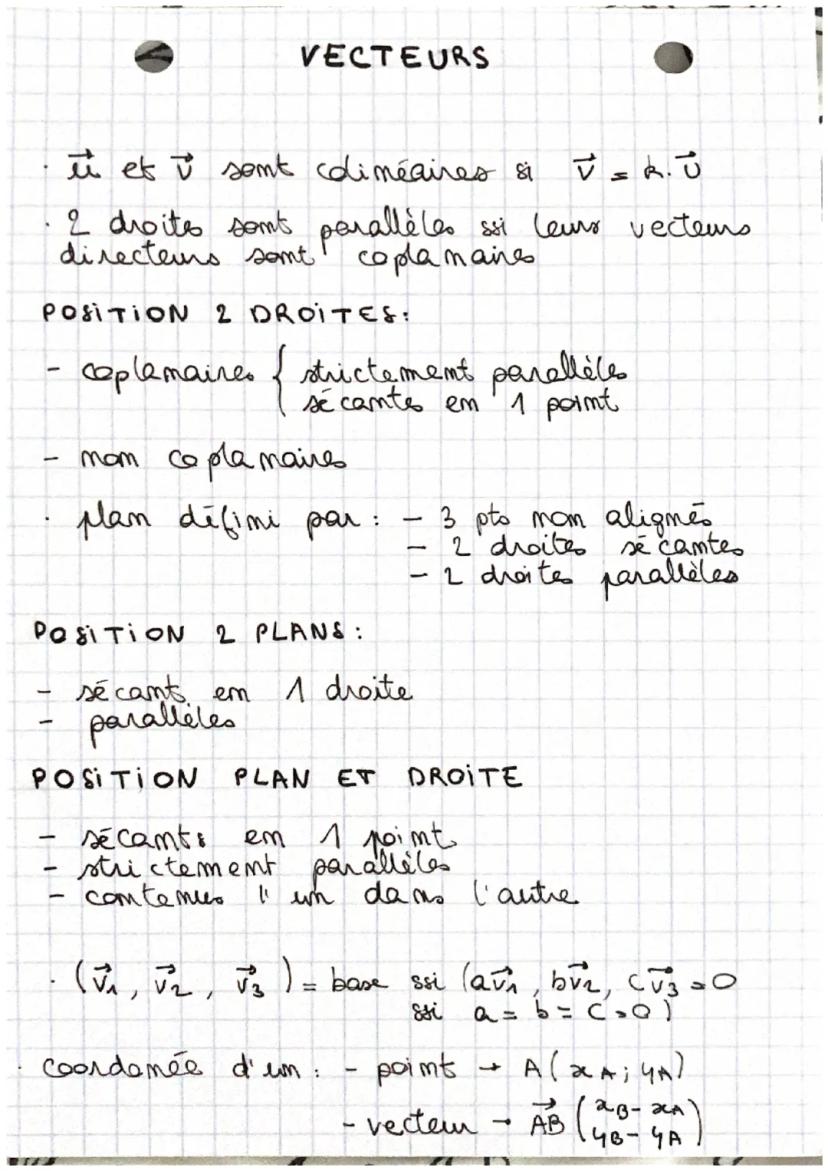 VECTEURS
· u⃗ et v⃗ sont colinéaires si v⃗ = k. u⃗
· 2 droites sont parallèles ssi leurs vecteurs
directeurs sont coplanaires
POSITION 2 DROITES:
- coplanaires { strictement parallèles
sécantes en 1 point
- non coplanaires
· plan défini par : - 3 pts non alignés
- 2 droites sécantes
- 2 droites parallèles
POSITION 2 PLANS :
- sécants en 1 droite
- parallèles
POSITION PLAN ET DROITE
- sécants en 1 point
- strictement parallèles
- contenus l'un dans l'autre
· (v⃗1, v⃗2, v⃗3) = base ssi (av⃗1, bv⃗2, cv⃗3 = 0
ssi a = b = c = 0)
· coordonée d'un : - point → A(xA; yA)
- vecteur → AB⃗ (xB - xA
yB - yA)